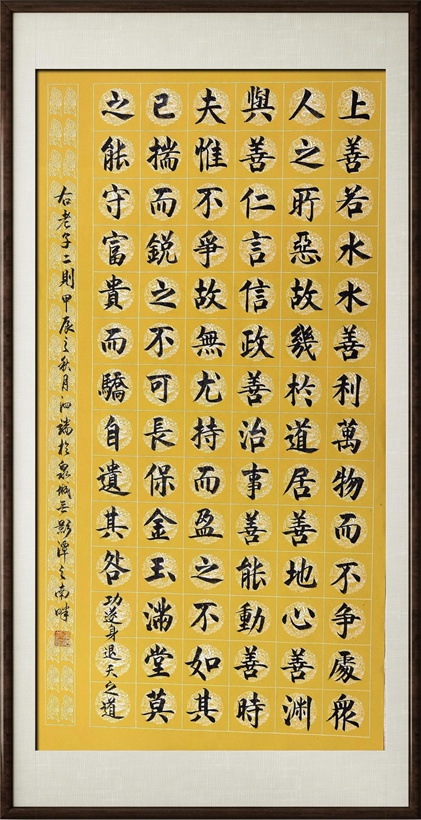 上善若水水善利萬物而不争處衆
人之所惡故幾於道居善地心善渊
與善仁言信政善治事善能動善時
夫惟不爭故無尤持而盈之不如其
已揣而銳之不可長保金玉滿堂莫
之能守富貴而驕自遺其咎功遂身退天之道
右老子二則甲辰之秋月泗端於泉城五影潭之南畔